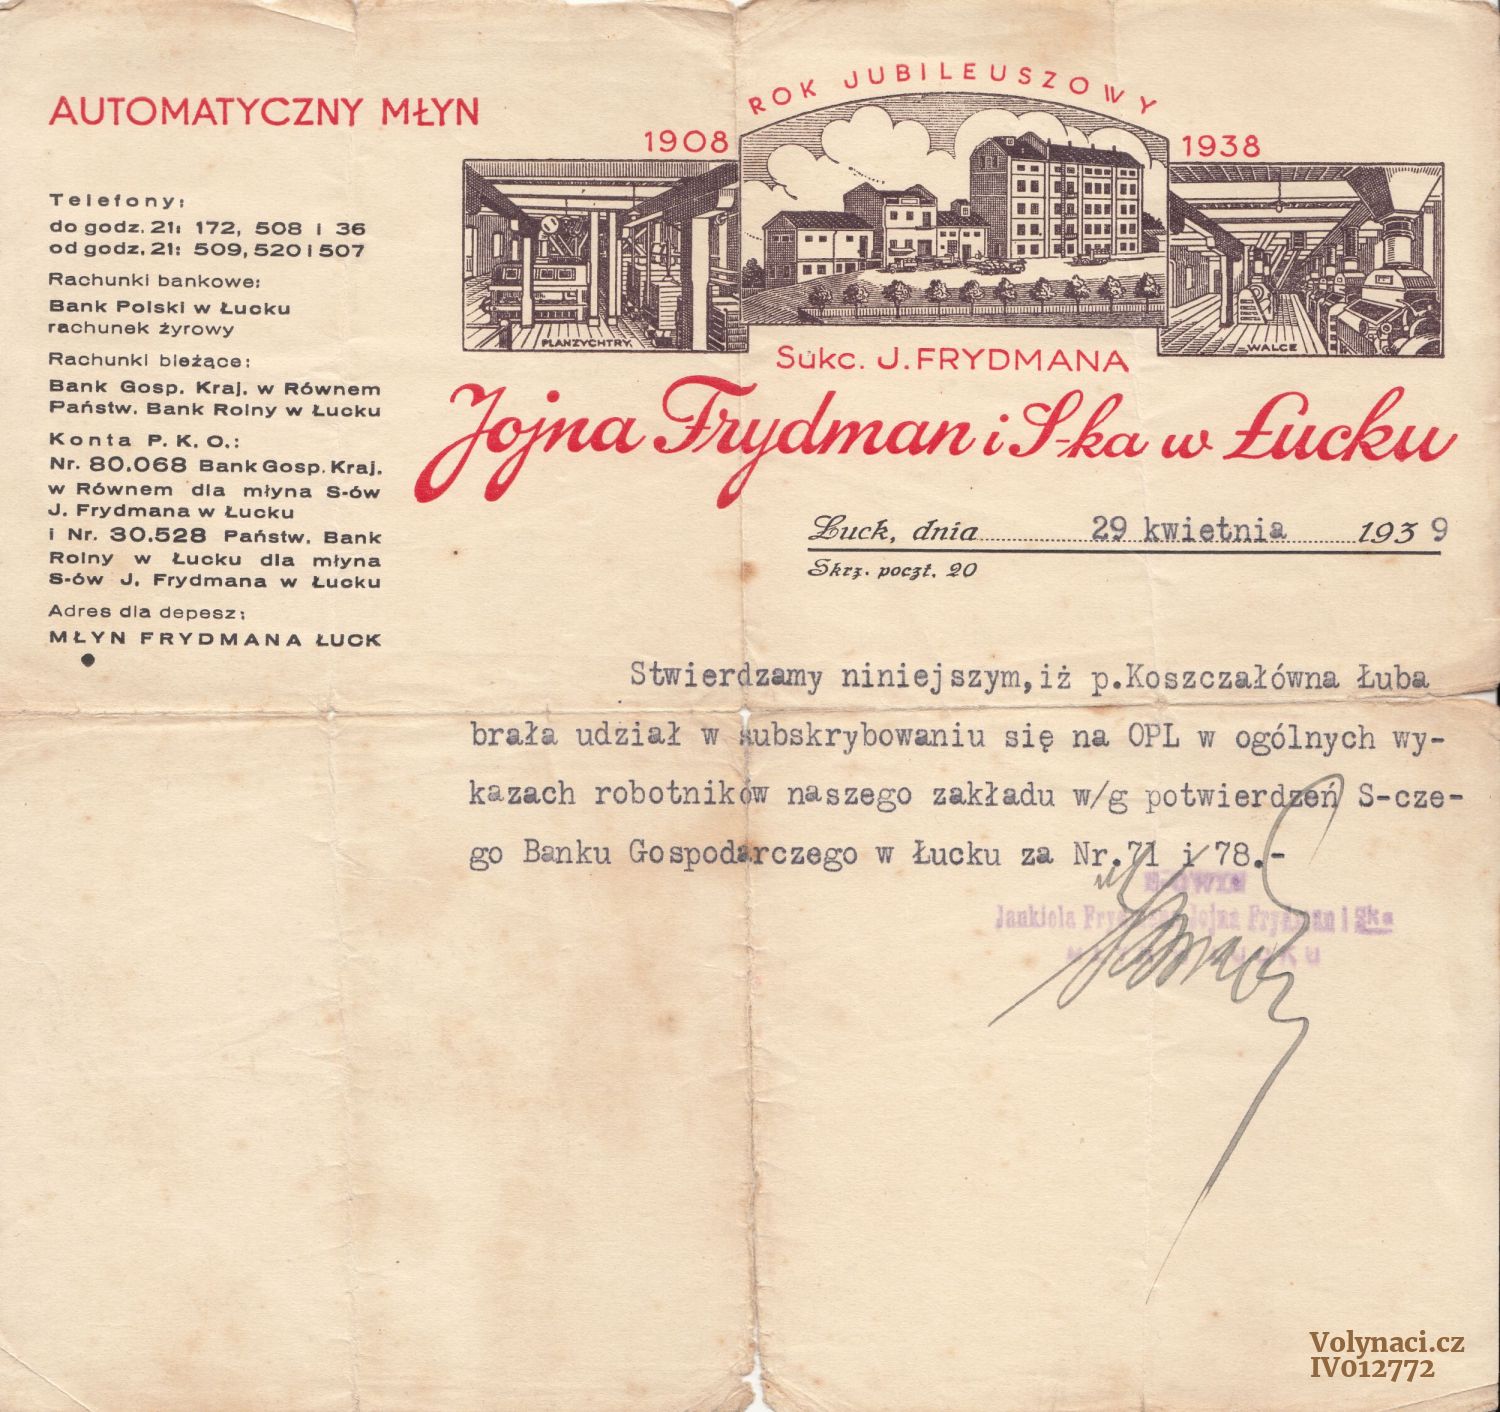 AUTOMATYCZNY MŁYN
ROK JUBILEUSZOWY
1908
1938
PLANZYCHTRY.
WALCE
Sukc. J. FRYDMANA
Jojna Frydman i S-ka w Łucku
Telefony:
do godz. 21: 172, 508 i 36
od godz. 21: 509, 520 i 507
Rachunki bankowe:
Bank Polski w Łucku
rachunek żyrowy
Rachunki bieżące:
Bank Gosp. Kraj. w Równem
Państw. Bank Rolny w Łucku
Konta P. K. O.:
Nr. 80.068 Bank Gosp. Kraj.
w Równem dla młyna S-ów
J. Frydmana w Łucku
i Nr. 30.528 Państw. Bank
Rolny w Łucku dla młyna
S-ów J. Frydmana w Łucku
Adres dla depesz:
MŁYN FRYDMANA ŁUCK
Łuck, dnia 29 kwietnia 1939
Skrz. poczt. 20
Stwierdzamy niniejszym, iż p. Koszczałówna Łuba
brała udział w subskrybowaniu się na OPL w ogólnych wy-
kazach robotników naszego zakładu w/g potwierdzeń S-cze-
go Banku Gospodarczego w Łucku za Nr. 71 i 78.-
Jankiela Jojna Frydman i Ska
Volynaci.cz
IV012772